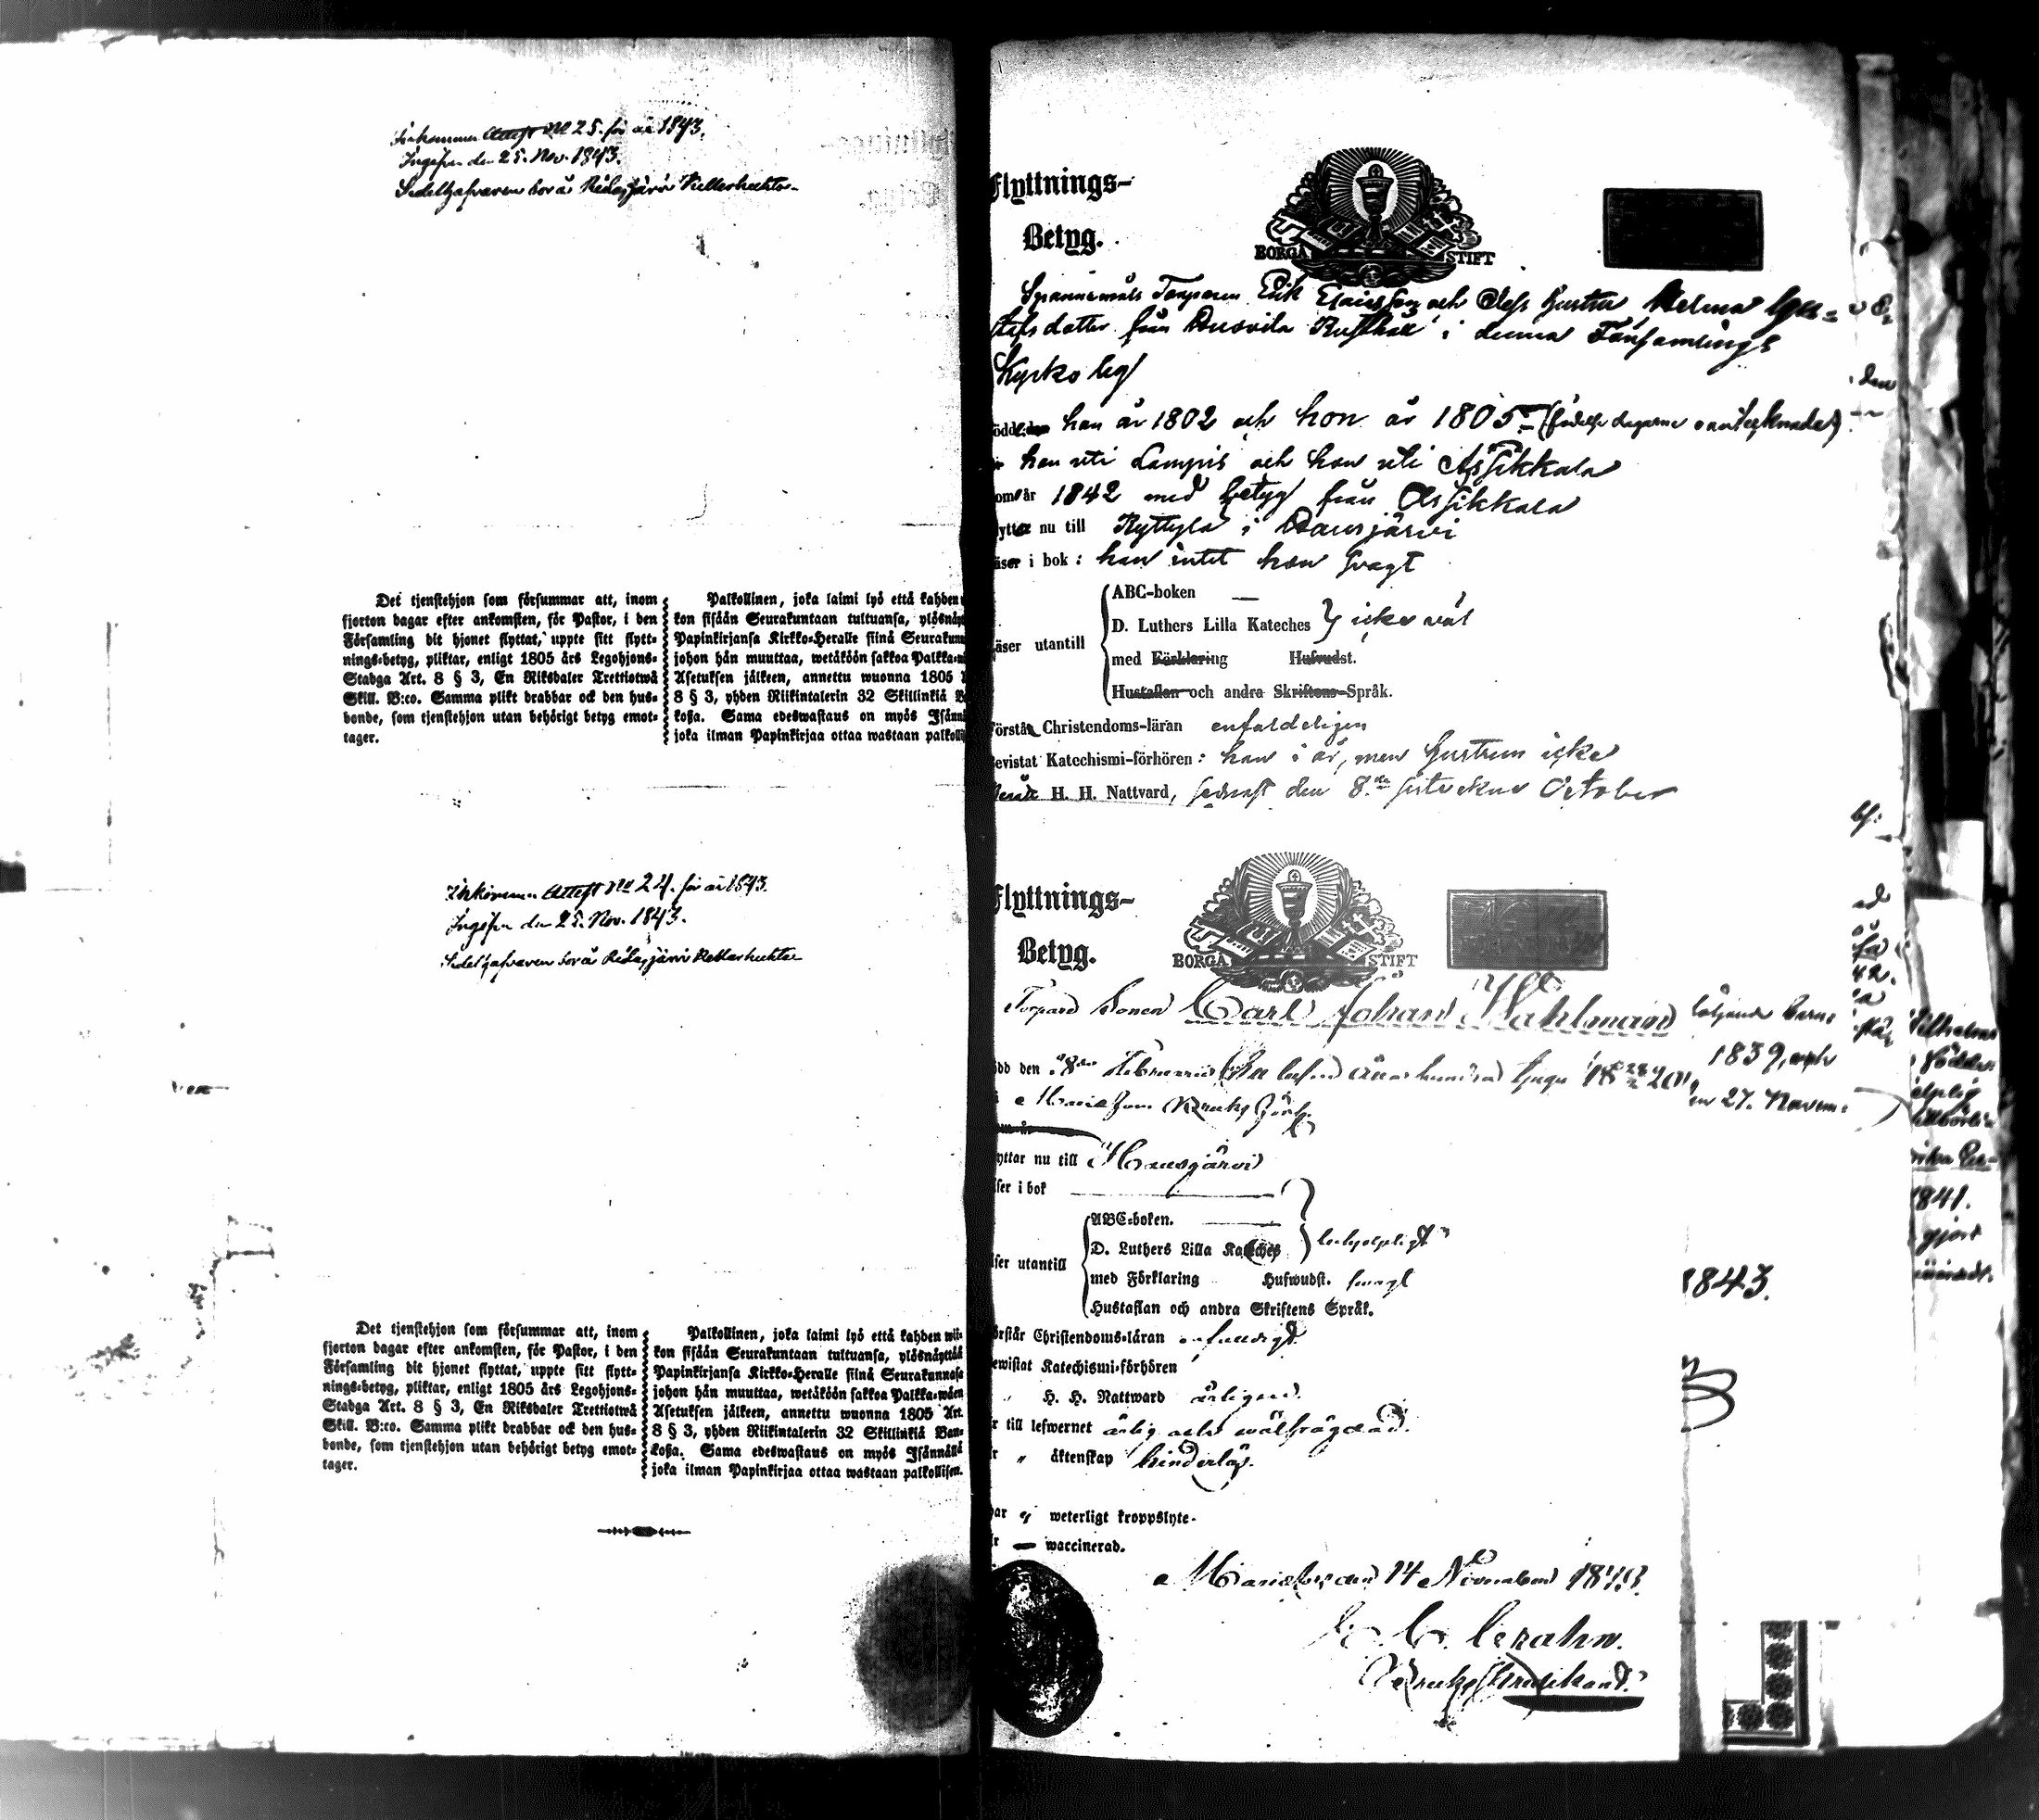 Inkommen Attest No 25. för år 1843.
Ingifven den 25. Nov. 1843.
Sedelhafvaren bor å Hidasjärvi
Det tjenstehjon som försummar att, inom
fjorton dagar efter ankomsten, för Pastor, i den
Församling dit hjonet flyttat, uppte sitt flytt-
nings-betyg, pliktar, enligt 1805 års Legohjons-
Stadga Art. 8 § 3, En Riksdaler Trettiotwå
Skill. B:co. Samma plikt drabbar ock den hus-
bonde, som tjenstehjon utan behörigt betyg emot-
tager.
Palkollinen, joka laimi lyö että kahden
kon sisään Seurakuntaan tultuansa, ylösnäyt
Papinkirjansa Kirkko-Heralle siinä Seurakunn
johon hän muuttaa, wetäköön sakkoa Palkka-
Asetuksen jälkeen, annettu wuonna 1805
8 § 3, yhden Riikintalerin 32 Skillinkiä B
koßa. Sama edeswastaus on myös Isänn
joka ilman Papinkirjaa ottaa wastaan palkolli
Inkommen Attest No 24. för år 1843.
Ingifven den 25. Nov. 1843.
Sedelhafvaren bor å Hidasjärvi
Det tjenstehjon som försummar att, inom
fjorton dagar efter ankomsten, för Pastor, i den
Församling dit hjonet flyttat, uppte sitt flytt-
nings-betyg, pliktar, enligt 1805 års Legohjons-
Stadga Art. 8 § 3, En Riksdaler Trettiotwå
Skill. B:co. Samma plikt drabbar ock den hus-
bonde, som tjenstehjon utan behörigt betyg emot-
tager.
Palkollinen, joka laimi lyö että kahden wii-
kon sisään Seurakuntaan tultuansa, ylösnäyttää
Papinkirjansa Kirkko-Heralle siinä Seurakunnasa
johon hän muuttaa, wetäköön sakkoa Palkka-wäen
Asetuksen jälkeen, annettu wuonna 1805 Art.
8 § 3, yhden Riikintalerin 32 Skillinkiä Ban-
koßa. Sama edeswastaus on myös Isännällä
joka ilman Papinkirjaa ottaa wastaan palkollisen.
Flyttnings-
Betyg.
BORGÅ STIFT
Torparen Erik och dess hustru Helena Gu=
stafsdotter från Rusthåll i denna Församlings
Kyrkoby
född den han år 1802 och hon år 1805 (födelse dagarne oantecknade)
han uti Lampis och hon uti Assikkala
om år 1842 med betyg från Assikkala
flyttar nu till Ryttylä i Hausjärvi
läser i bok: han intet hon svagt
läser utantill
ABC-boken —
D. Luthers Lilla Kateches } icke väl
med Förklaring Hufvudst.
Hustaflan och andra Skriftens Språk.
Förstår Christendoms-läran enfaldeligen
Bevistat Katechismi-förhören: han i år, men hustrun icke
H. H. Nattvard, sednast den 8de sistvekne October
Flyttnings-
Betyg.
BORGÅ STIFT
Torpare Sonen Carl Johan Wahlman
född den 8de Februarii Ett tusend åttahundrad tjugu 1820
Mariefors Bruks Förs.
flyttar nu till Hausjärvi
läser i bok
läser utantill
ABC-boken.
D. Luthers Lilla Kateches } behjelpligt
med Förklaring Hufwudst. svagt
Hustaflan och andra Skriftens Språk.
Förstår Christendoms-läran enfaldigt
Bewistat Katechismi-förhören
„ H. H. Nattward årligen.
är till lefwernet ärlig och wälfrägdad.
är „ äktenskap hinderlös.
har ej weterligt kroppslyte.
är — waccinerad.
Mariefors den 14 November 1843.
Bruks Predikant.
följande barn:
1839, och
en 27. Novem:
1843.
den
42.
födde
1841.
gjort